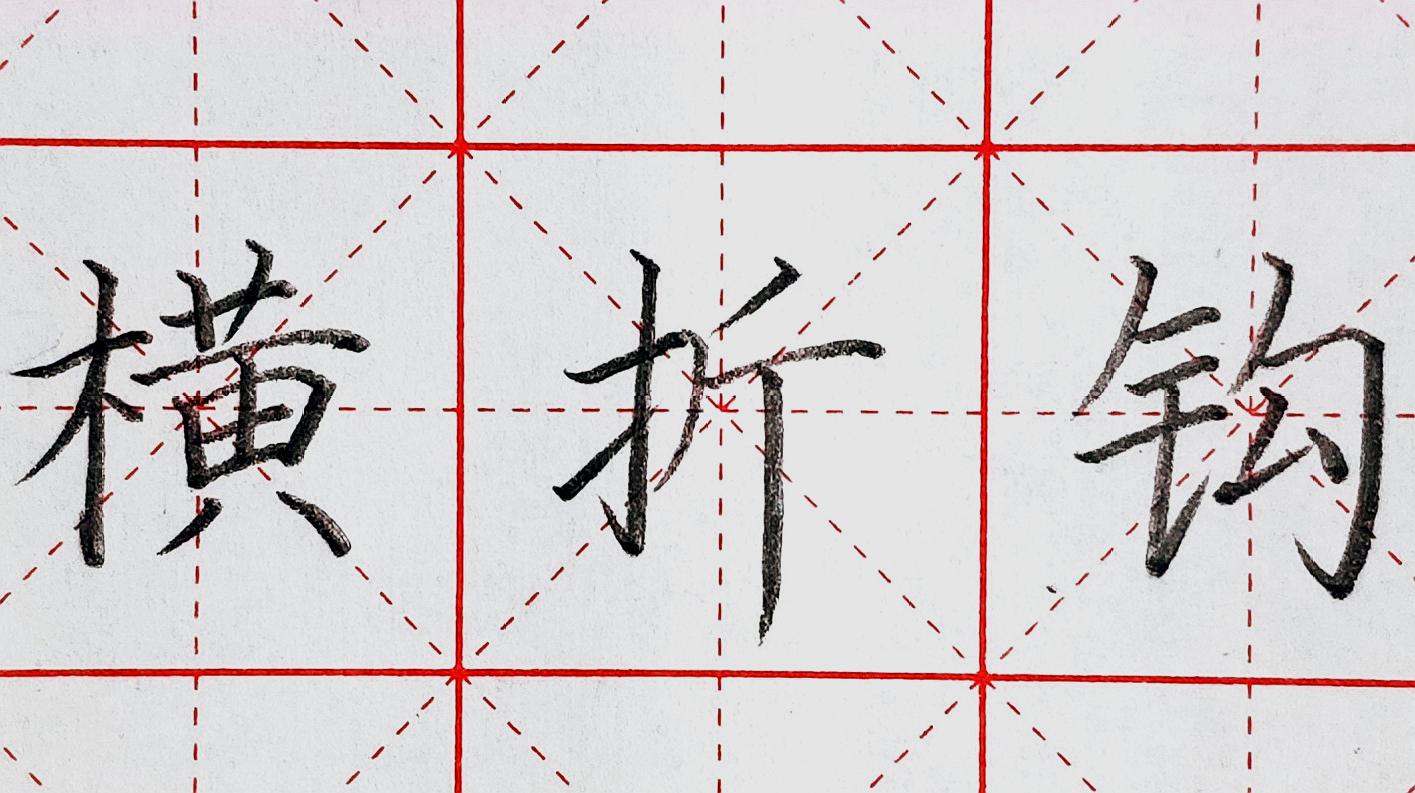 横折钩